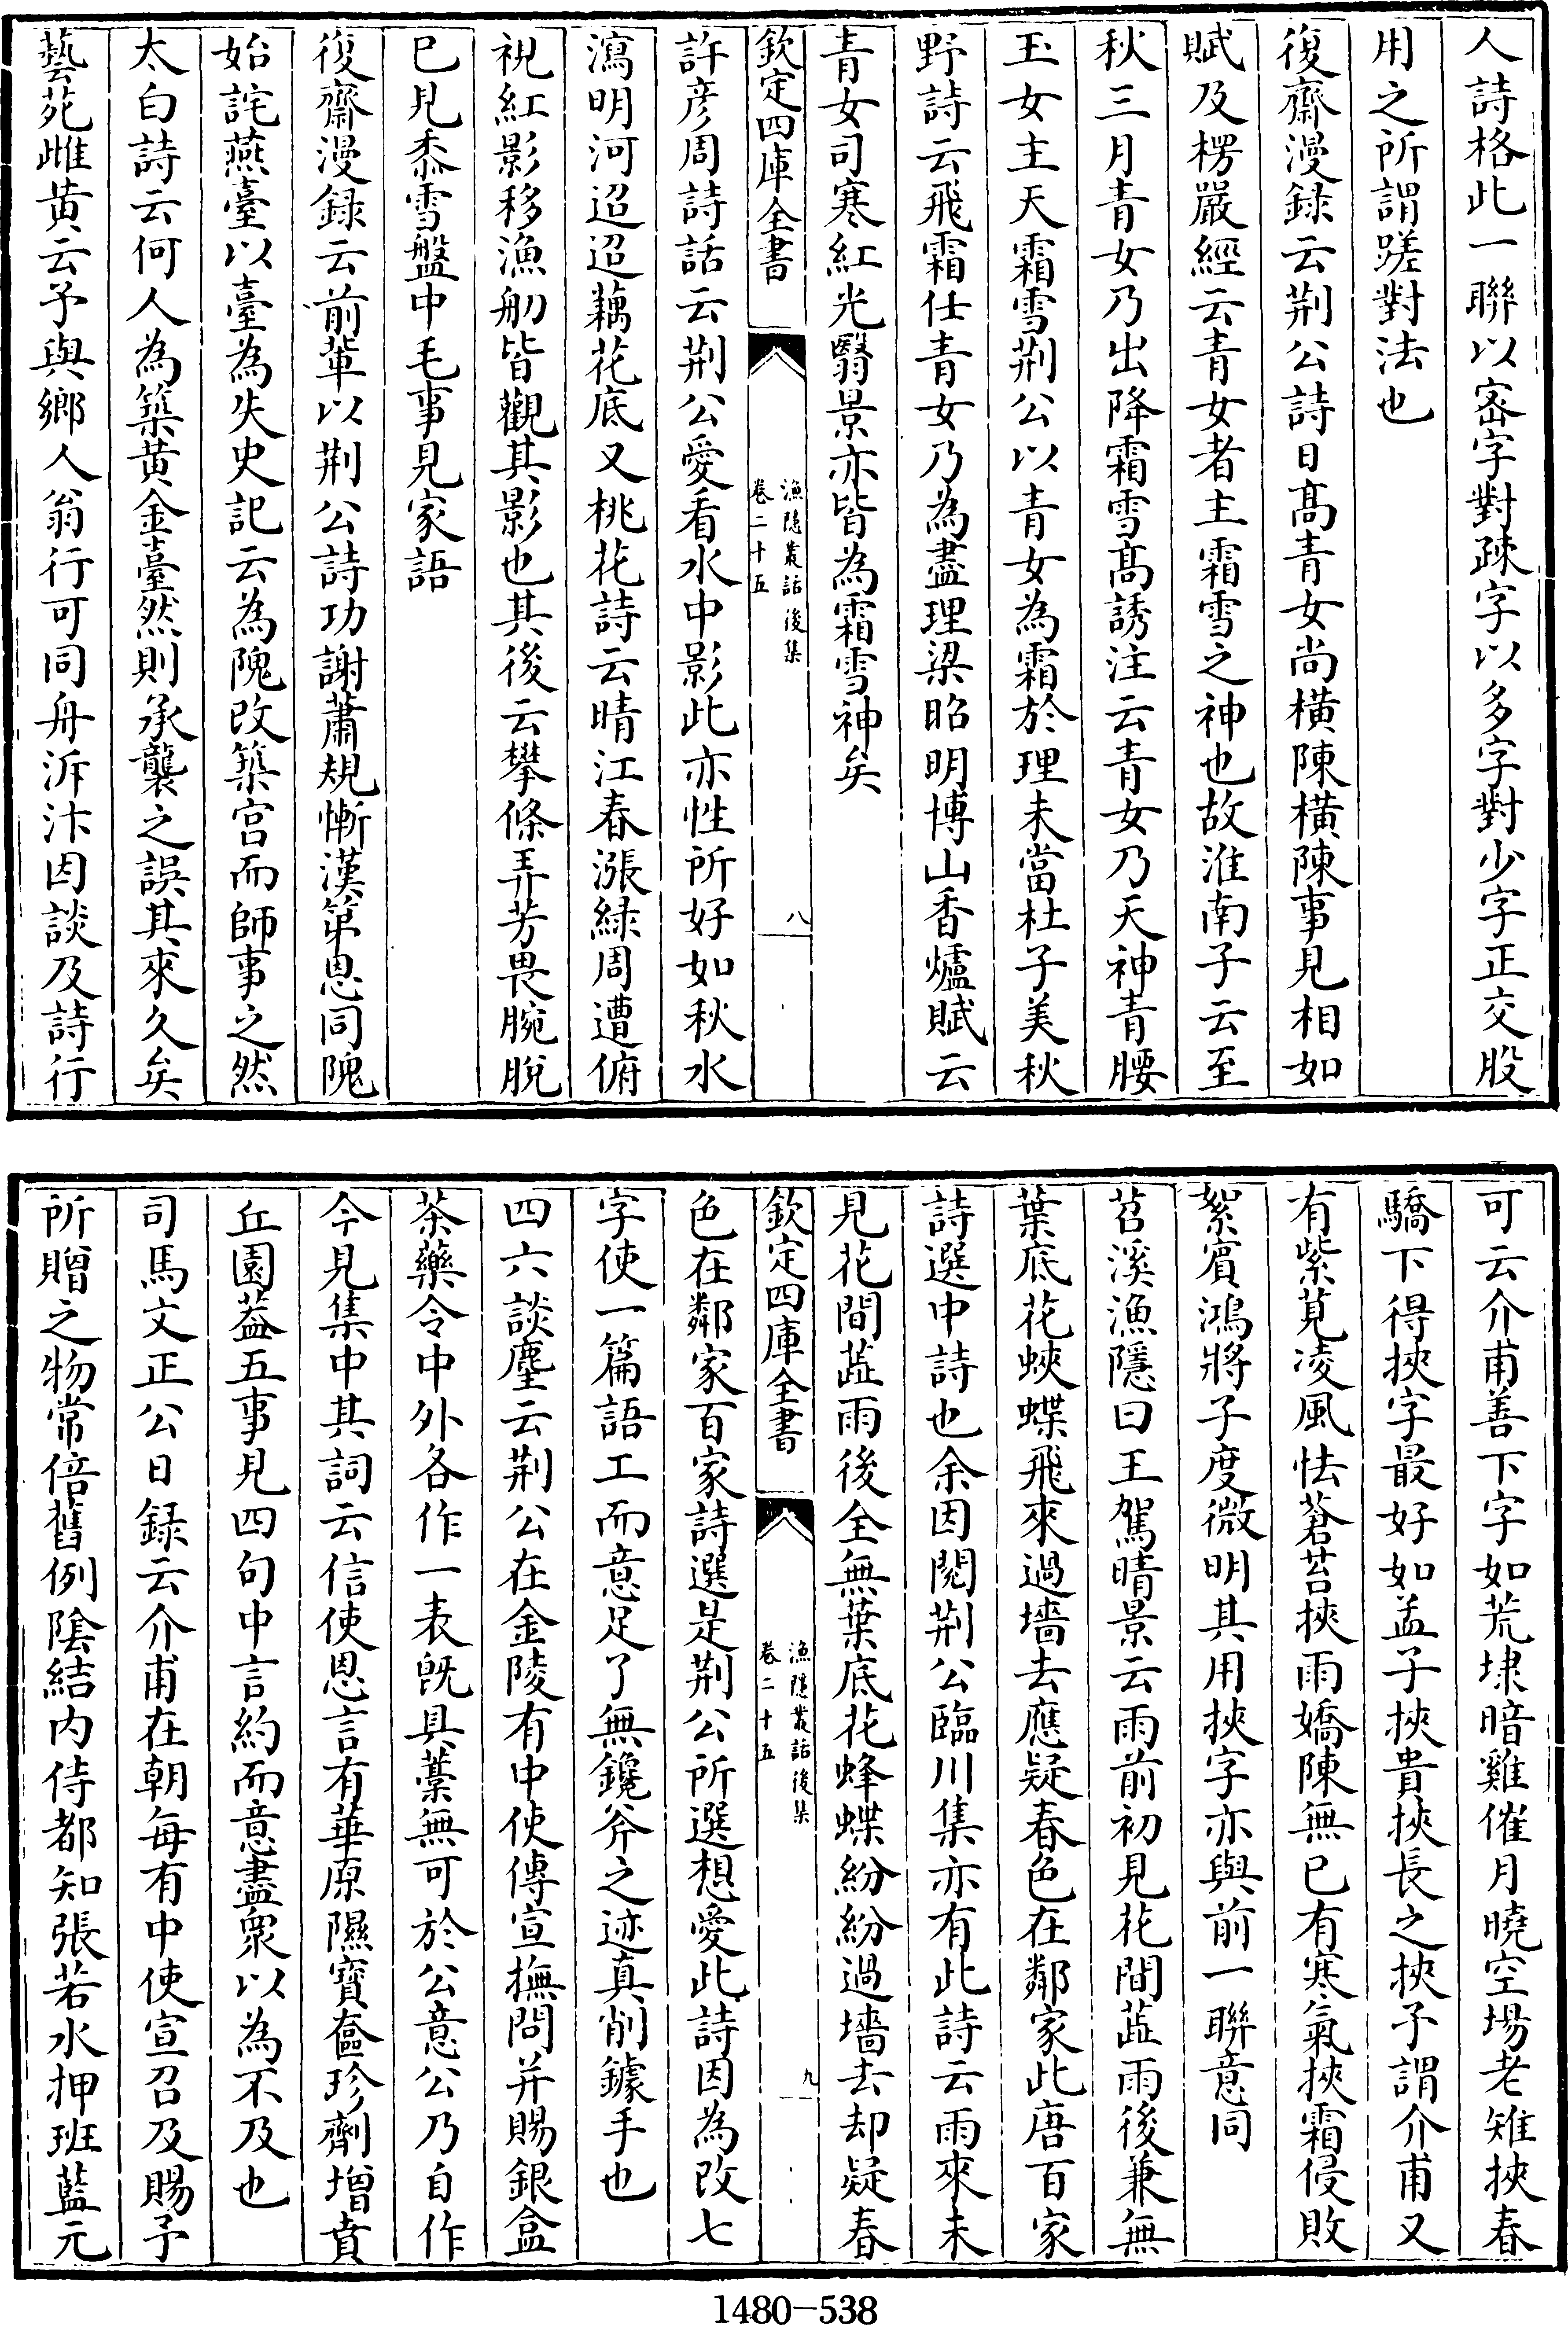 人詩格此一聯以宻字對疎字以多字對少字正交股
用之所謂蹉對法也
復齋漫録云荆公詩日髙青女尚橫陳橫陳事見相如
賦及楞嚴經云青女者主霜雪之神也故淮南子云至
秋三月青女乃出降霜雪髙誘注云青女乃天神青腰
玉女主天霜雪荆公以青女為霜於理未當杜子美秋
野詩云飛霜任青女乃為盡理梁昭明博山香爐賦云
青女司寒紅光翳景亦皆為霜雪神矣
欽定四庫全書
漁隠叢話後集
卷二十五
八
許彦周詩話云荆公愛看水中影此亦性所好如秋水
瀉明河迢迢藕花底又桃花詩云晴江春漲緑周遭俯
視紅影移漁舠皆觀其影也其後云攀條弄芳畏腕脫
已見黍雪盤中毛事見家語
復齋漫録云前輩以荆公詩功謝蕭規慚漢第恩同隗
始詫燕臺以臺為失史記云為隗改築宫而師事之然
太白詩云何人為築黄金臺然則承襲之誤其來久矣
藝苑雌黄云予與鄉人翁行可同舟泝汴因談及詩行
可云介甫善下字如荒埭暗雞催月曉空塲老雉挾春
驕下得挾字最好如孟子挾貴挾長之挾予謂介甫又
有紫莧凌風怯蒼苔挾雨嬌陳無已有寒氣挾霜侵敗
絮賓鴻將子度微明其用挾字亦與前一聯意同
苕溪漁隱曰王駕晴景云雨前初見花間蘂雨後兼無
葉底花蛺蝶飛來過墻去應疑春色在鄰家此唐百家
詩選中詩也余因閱荆公臨川集亦有此詩云雨來未
見花間蘂雨後全無葉底花蜂蝶紛紛過墻去却疑春
欽定四庫全書
漁隠叢話後集
卷二十五
九
色在鄰家百家詩選是荆公所選想愛此詩因為改七
字使一篇語工而意足了無鑱斧之迹真削鐻手也
四六談麈云荆公在金陵有中使傳宣撫問并賜銀盒
茶藥令中外各作一表旣具藁無可於公意公乃自作
今見集中其詞云信使恩言有華原隰寳奩珍劑增賁
丘園葢五事見四句中言約而意盡衆以為不及也
司馬文正公日録云介甫在朝每有中使宣召及賜予
所贈之物常倍舊例隂結内侍都知張若水押班藍元
1480-538